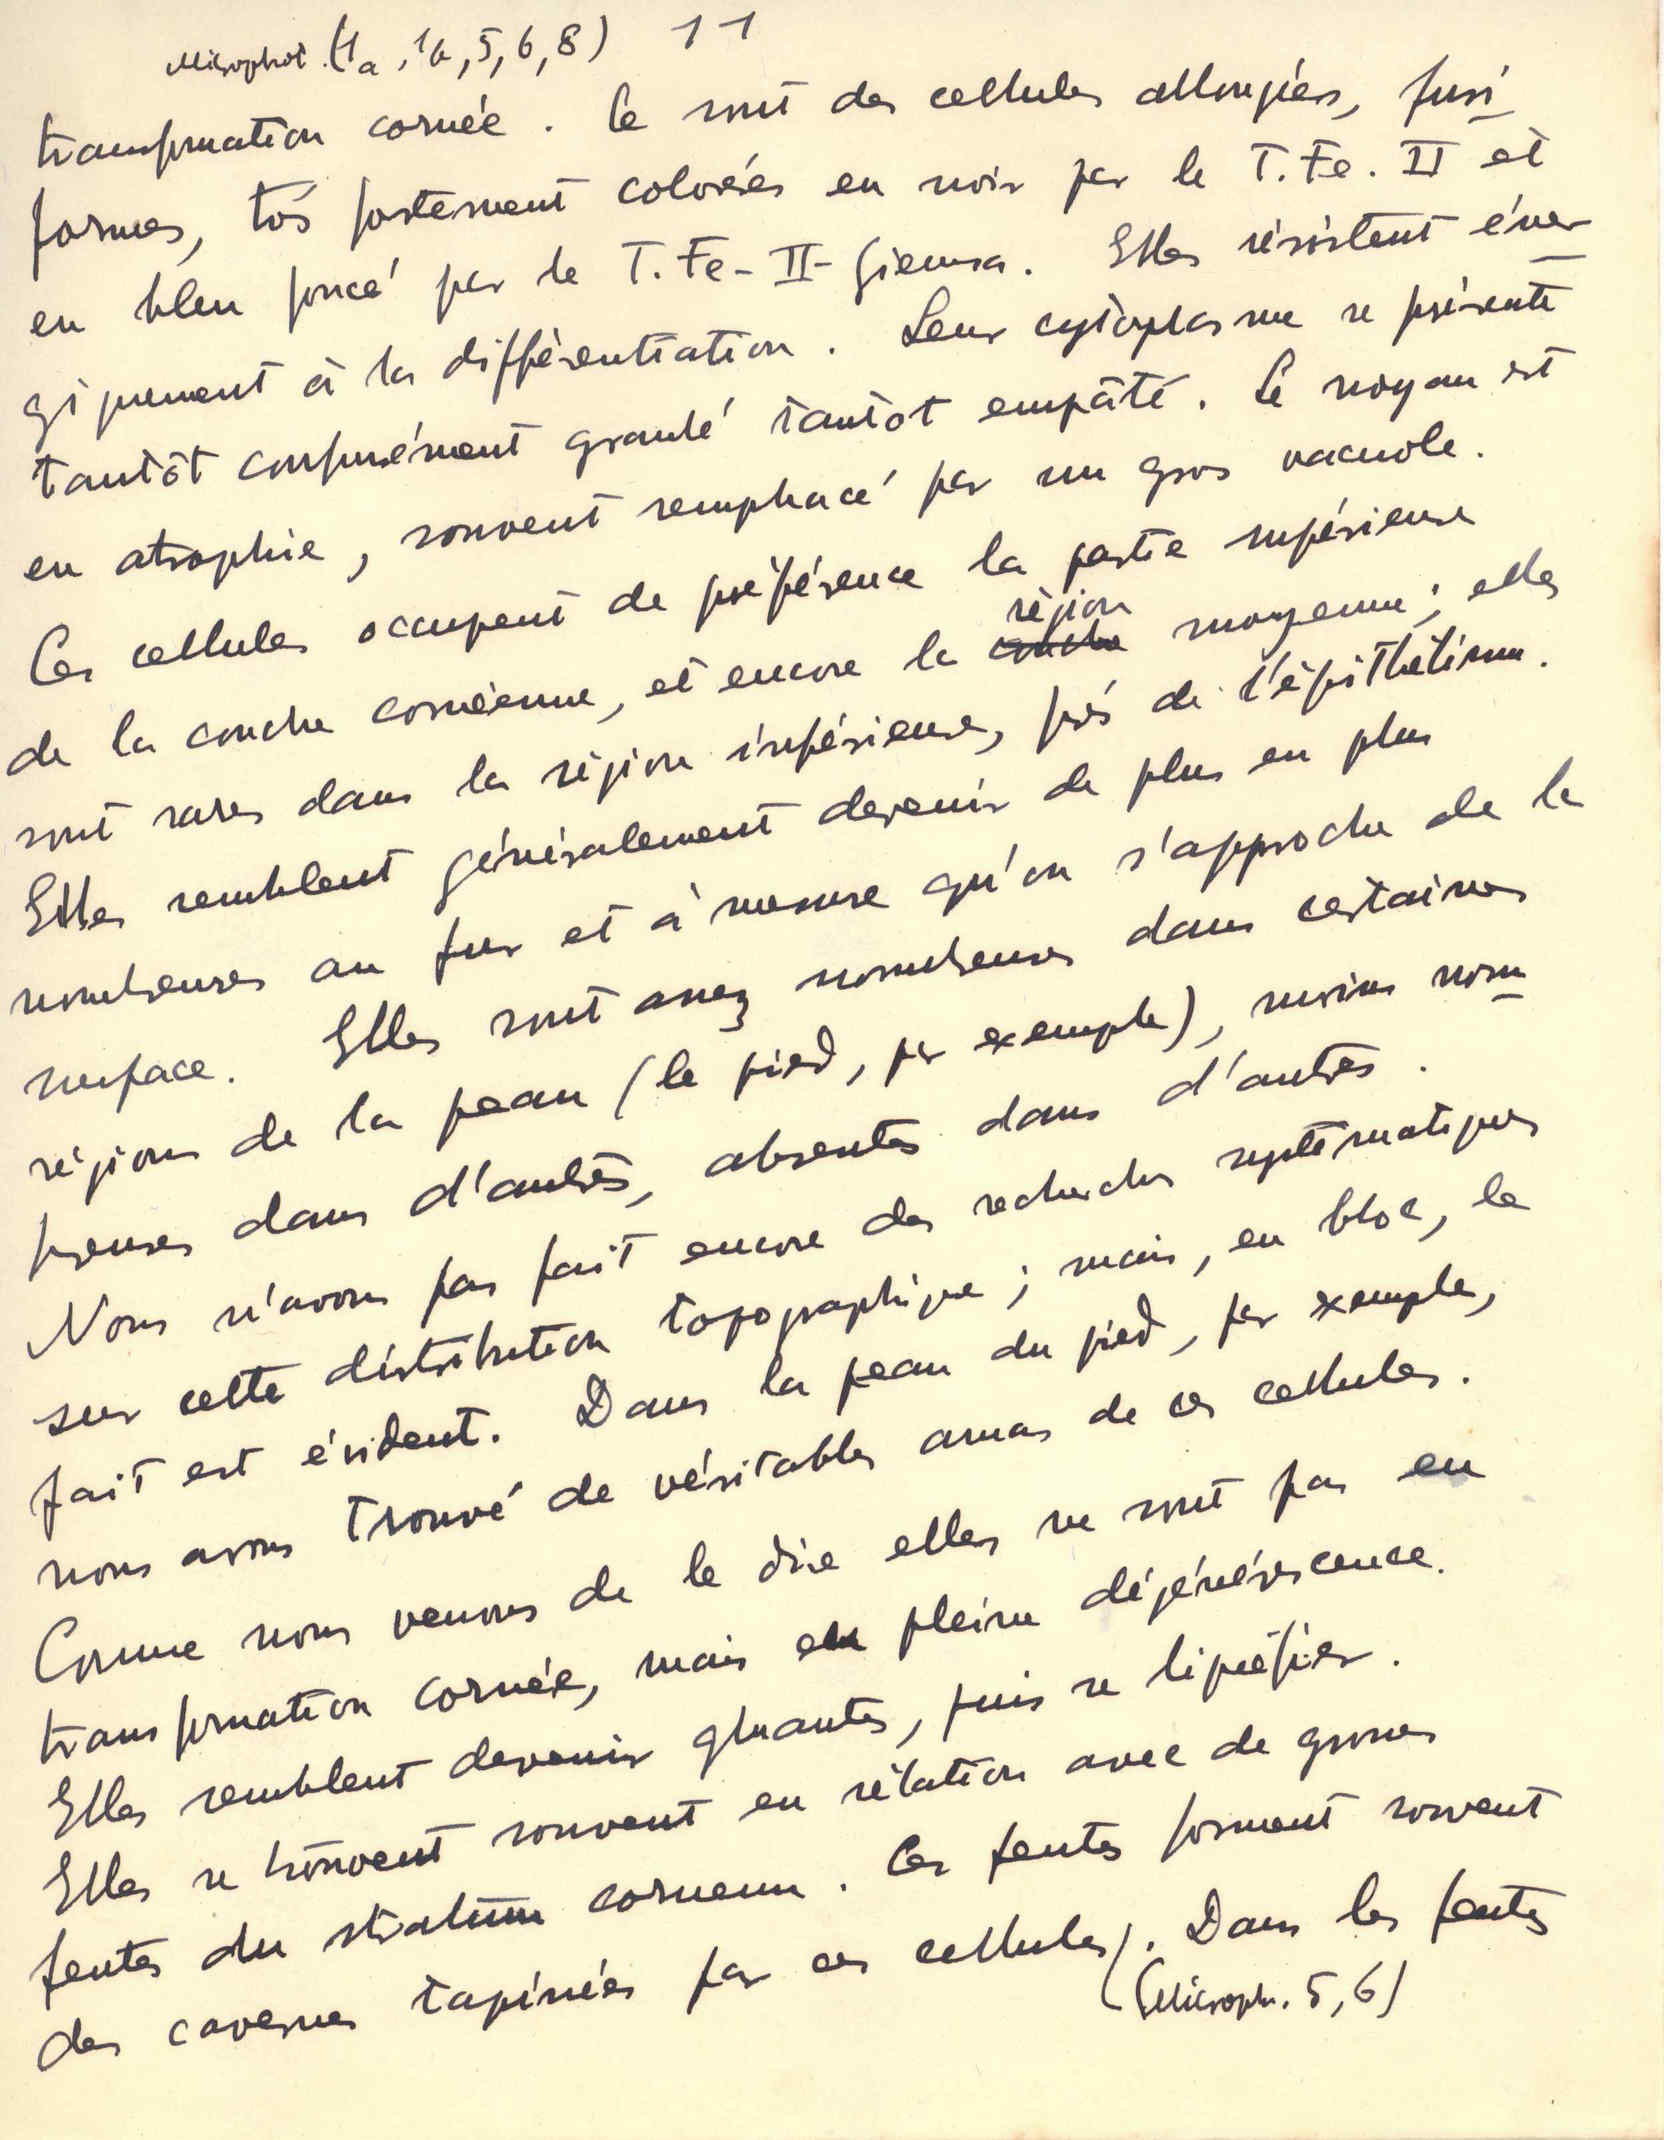 Microphot. (1a, 1b, 5, 6, 8) 11
transformation cornée. Ce sont des cellules allongées, fusi-
formes, très fortement colorées en noir par le T.Fe.II et
en bleu foncé par le T.Fe-II-Giemsa. Elles résistent éner-
giquement à la différentiation. Leur cytoplasme se présente
tantôt confusément granulé tantôt empâté. Le noyau est
en atrophie, souvent remplacé par un gros vacuole.
Ces cellules occupent de préférence la partie supérieure
de la couche cornéenne, et encore la région moyenne; elles
sont rares dans la région inférieure, près de l'épithélium.
Elles semblent généralement devenir de plus en plus
nombreuses au fur et à mesure qu'on s'approche de la
surface. Elles sont assez nombreuses dans certaines
régions de la peau (le pied, par exemple), moins nom-
breuses dans d'autres, absentes dans d'autres.
Nous n'avons pas fait encore des recherches systématiques
sur cette distribution topographique; mais, en bloc, le
fait est évident. Dans la peau du pied, par exemple,
nous avons trouvé de véritables amas de ces cellules.
Comme nous venons de le dire elles ne sont pas en
transformation cornée, mais en pleine dégénérescence.
Elles semblent devenir gluantes, puis se liquéfier.
Elles se trouvent souvent en rélation avec de grosses
fentes du stratum corneum. Ces fentes forment souvent
des cavernes tapissées par ces cellules. Dans les fentes
(Microph. 5, 6)